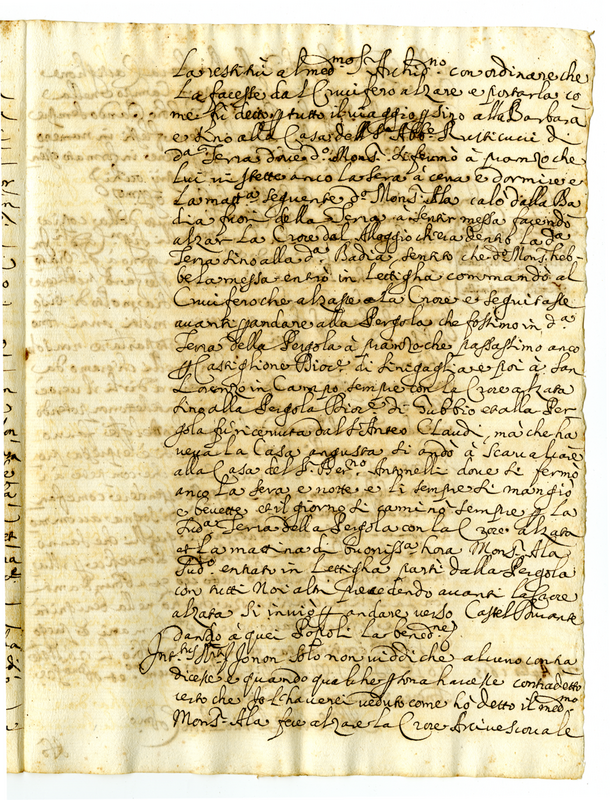 La restituì al med.mo S.r Archid.no con ordinare che
La facesse dal Crucifero alzare e portarla co
me fù detto p tutto il viaggio p sino alla Barbara
e sino alla Casa dell S.r Abb.e Rusticucci di
d.a Terra dove d.o Mons.r si fermò à pranzo che
lui vi stette anco la sera à cena e dormire e
La matt.a seguente d.o Mons.r Ala calò dalla Ba
dia fuori della Terra a sentir messa facendo
alzar La Croce dal dentro la d.a
Terra sino alla d.a Badia, sentito che d.o Mons.r heb-
be la messa entrò in Lettigha commandò al
Crucifero che alzasse La Croce e seguitasse
avanti p andare alla Pergola che fossimo in d.a
Terra della Pergola à pranzo che passassimo anco
p Castiglione Dioc.e di Sinigaglia e poi à San
Lorenzo in Campo sempre con la Croce alzata
sino alla Pergola Dioc.e di Gubbio et alla Per
gola fu ricevuta dal S.r Anteo Claudi, mà che ha
veva la Casa angusta si andò à scavalcare
alla Casa del S.r Ber.no Antinelli dove si fermò
anco La sera e notte e li sempre si mangiò
e bevette et il giorno si caminò sempre p la
sud.a Terra della Pergola con la Croce alzata
et La mattina di buonissa hora Mons.r Ala
sud.o entrato in Lettigha partì dalla Pergola
con tutti Noi altri precedendo avanti la Croce
alzata si inviò p andare verso Castel Durante
dando à quei Popoli la bened.ne
Int.tus R.t Io non solo non viddi che alcuno contra
dicesse e quando qualche psona havesse contradetto
certo che Io l'haverei veduto come hò detto il med.mo
Mons.r Ala fece alzare la Croce Arcivescovale